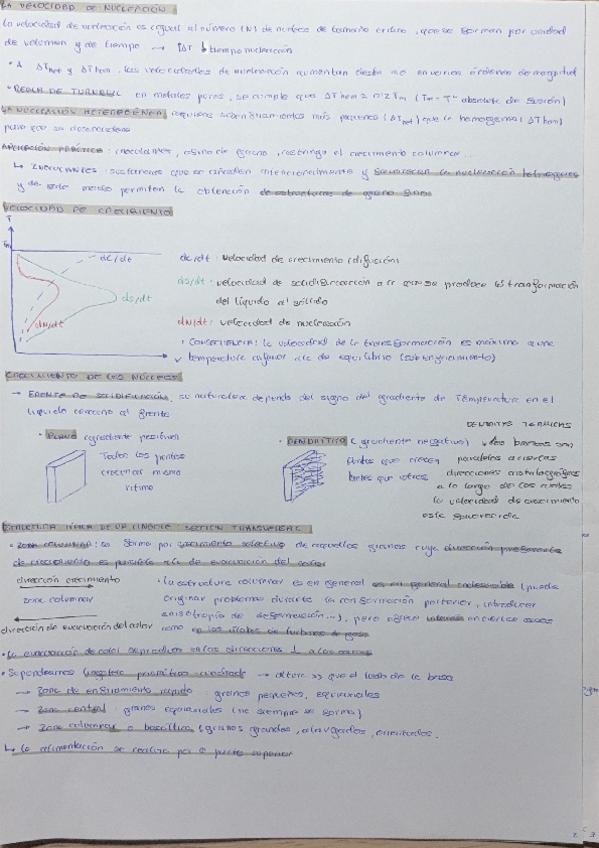 LA VELOCIDAD DE NUCLEACIÓN
La velocidad de nucleación es igual al número (N) de núcleos de tamaño crítico, que se forman por unidad
de volumen y de tiempo → ↑ΔT ↓ tiempo nucleación
• A ΔThet y ΔThom, las velocidades de nucleación aumentan desde a en varios órdenes de magnitud
• REGLA DE TURNBULL en metales puros, se cumple que ΔThom ≈ 0'2 Tm (Tm - Tª absoluta de fusión)
LA NUCLEACIÓN HETEROGÉNEA requiere subenfriamientos más pequeños (ΔThet) que la homogénea (ΔThom)
para que se desencadene
APLICACIÓN PRÁCTICA: inoculantes, afino de grano, restringir el crecimiento columnar...
↳ INOCULANTES: sustancias que se añaden intencionadamente y favorecen la nucleación heterogénea
y de este modo permiten la obtención de estructuras de grano fino
VELOCIDAD DE CRECIMIENTO
T
Tm
dc/dt
ds/dt
dN/dt
dc/dt: velocidad de crecimiento (difusión)
ds/dt: velocidad de solidificación a la que se produce la transformación
del líquido al sólido
dN/dt: velocidad de nucleación
• CONSECUENCIA: la velocidad de la transformación es máxima a una
temperatura inferior a la de equilibrio (subenfriamiento)
CRECIMIENTO DE LOS NÚCLEOS
→ FRENTE DE SOLIDIFICACIÓN, su naturaleza depende del signo del gradiente de Temperatura en el
líquido cercano al frente
• PLANO (gradiente positivo)
Todos los puntos
crecen al mismo
ritmo
• DENDRÍTICO (gradiente negativo)
Puntos que crecen
antes que otros
DENDRITAS TÉRMICAS
los brazos son
paralelos a ciertas
direcciones cristalográficas
a lo largo de las cuales
la velocidad de crecimiento
está favorecida
ESTRUCTURA TÍPICA DE UN LINGOTE: SECCIÓN TRANSVERSAL
• ZONA COLUMNAR: se forma por crecimiento selectivo de aquellos granos cuya dirección preferente
de crecimiento es paralela a la de evacuación del calor
dirección crecimiento
zona columnar
dirección de evacuación del calor
• La estructura columnar es en general indeseable (puede
originar problemas durante la conformación posterior, introducir
anisotropía de deformación...), pero ofrece en ciertos casos
como en los álabes de turbinas de gas
• La evacuación de calor se produce en las direcciones ⊥ a las caras
• Supondremos lingotera prismática cuadrada → altura >> que el lado de la base
→ Zona de enfriamiento rápido: granos pequeños, equiaxiales
→ Zona central: granos equiaxiales (no siempre se forma)
→ Zona columnar o basáltica (granos grandes, alargados, orientados.
↳ la alimentación se realiza por la parte superior